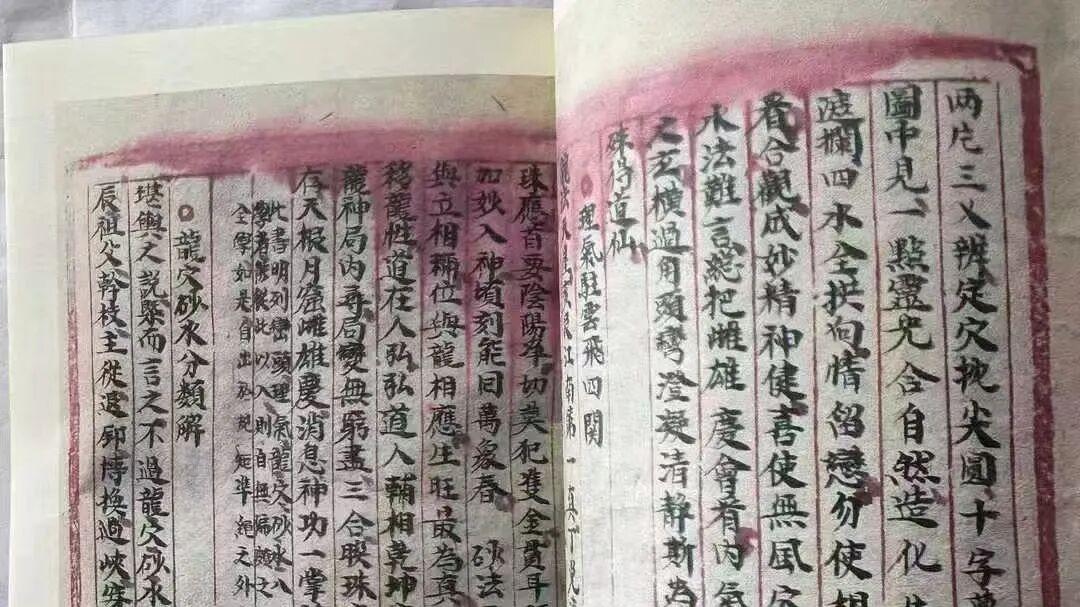 两片三义辨定穴枕尖圓十字
圖中見一點靈光合自然造化
四水全拱向情留戀勿使
看合觀成妙精神健喜使無風
水法難言總把雌雄慶會看內氣
之玄橫過用頭彎澄凝清靜斯為
珠待道仙
理氣駐雲飛四関
江南第一真
珠應首要陰陽準切莫犯隻全貫耳
如妙入神頃刻能回萬象春 砂法
與立相稱位與龍相應生旺最為真
移龍性道在人弘弘道人輔相乾坤
龍神局內尋局變無窮盡三合聯珠
存天根月窟雌雄慶消息神功一掌
此書明列巒頭理氣龍穴砂水八
學者熊從此以入則自無偏頗之
全學如是自出於規矩準繩之外
龍穴砂水分類解
堪輿之說緊而言之不過龍穴砂水
辰祖父幹枝主從退卸博換過峽